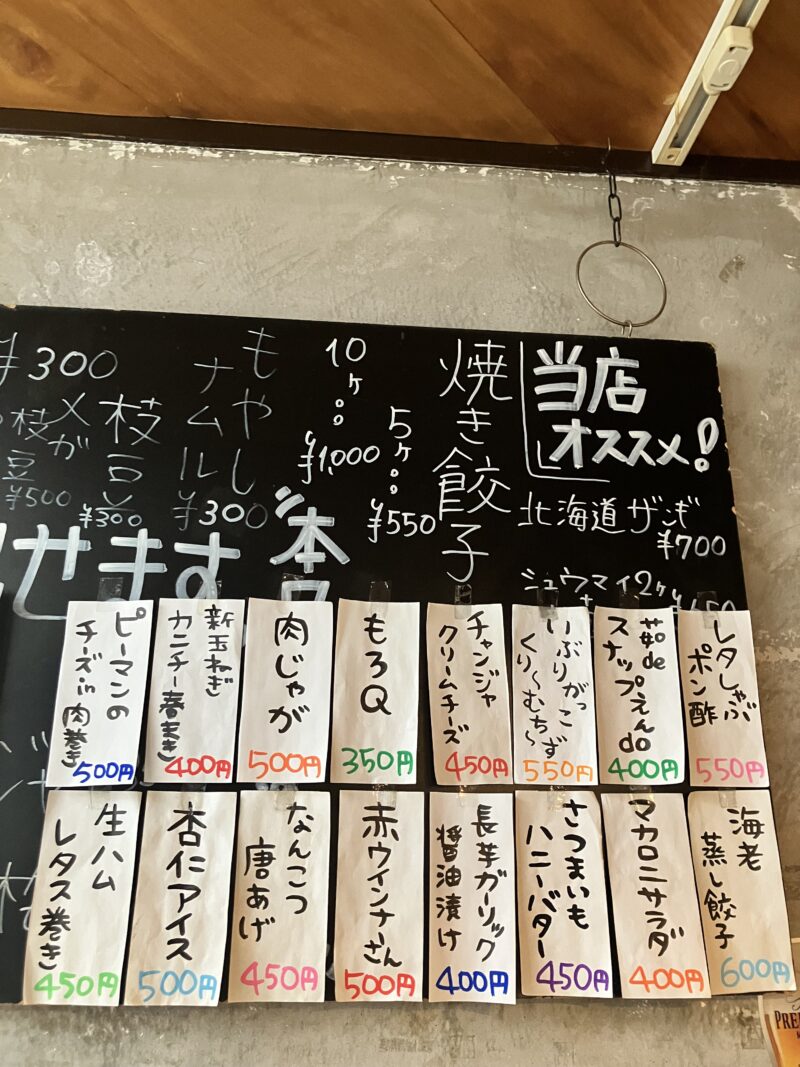 当店
オススメ!
北海道ザンギ
¥700
シュウマイ2ケ
焼き餃子
5ケ。。¥550
10ケ。。¥1,000
もやし
ナムル
¥300
枝豆
¥300
メガ
枝豆
¥500
¥300
せます
本日
レタしゃぶ
ポン酢
550円
茹de
スナップえんdo
400円
いぶりがっこ
くり〜むち〜ず
550円
チャンジャ
クリームチーズ
450円
もろQ
350円
肉じゃが
500円
新玉ねぎ
カニチー春まき
400円
ピーマンの
チーズin肉巻き
500円
海老
蒸し餃子
600円
マカロニサラダ
400円
さつまいも
ハニーバター
450円
長芋ガーリック
醤油漬け
400円
赤ウインナーさん
500円
なんこつ
唐あげ
450円
杏仁アイス
500円
生ハム
レタス巻き
450円